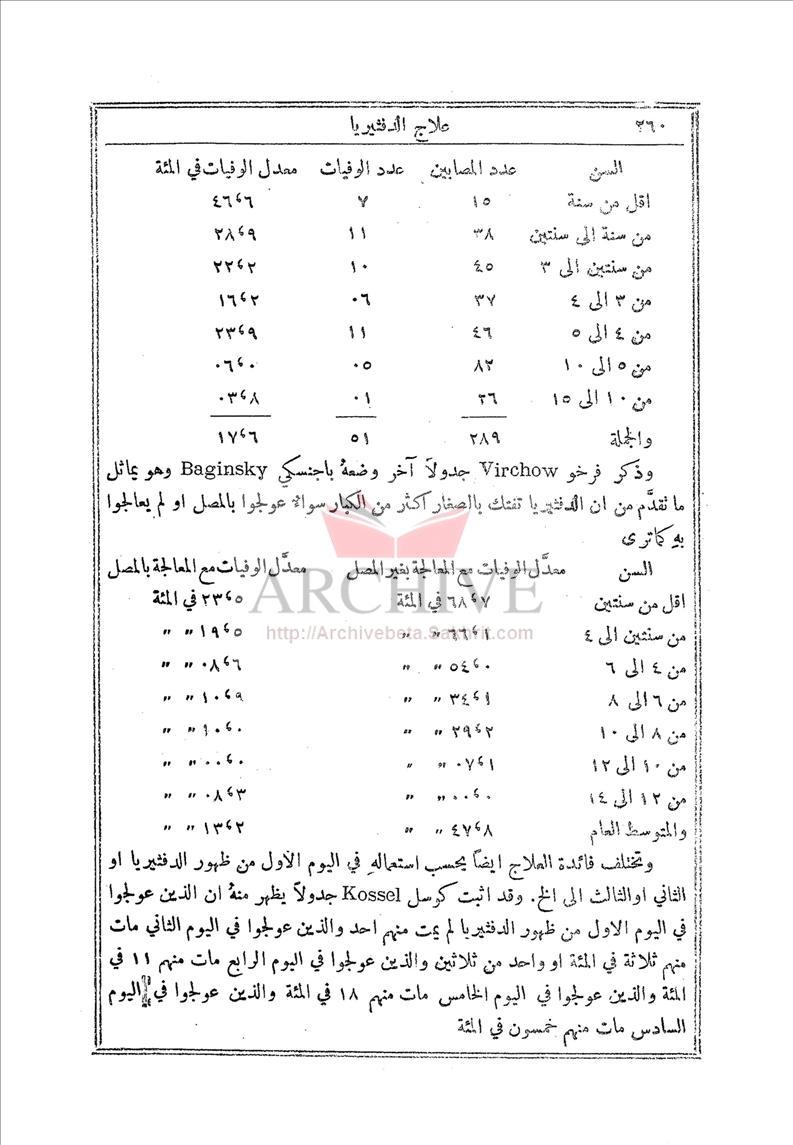 ٣٦٠ علاج الدفثيريا
السن عدد المصابين عدد الوفيات معدل الوفيات في المئة
اقل من سنة ١٥ ٧ ٤٦‘٦
من سنة الى سنتين ٣٨ ١١ ٢٨‘٩
من سنتين الى ٣ ٤٥ ١٠ ٢٢‘٢
من ٣ الى ٤ ٣٧ ٠٦ ١٦‘٢
من ٤ الى ٥ ٤٦ ١١ ٢٣‘٩
من ٥ الى ١٠ ٨٢ ٠٥ ٠٦‘٠
من ١٠ الى ١٥ ٢٦ ٠١ ٠٣‘٨
والجملة ٢٨٩ ٥١ ١٧‘٦
وذكر فرخو Virchow جدولاً آخر وضعهُ باجنسكي Baginsky وهو يماثل
ما نقدَّم من ان الدفثيريا تفتك بالصغار اكثر من الكبار سواءٌ عولجوا بالمصل او لم يعالجوا
بهِ كما ترى
السن معدَّل الوفيات مع المعالجة بغير المصل معدَّل الوفيات مع المعالجة بالمصل
اقل من سنتين ٦٨‘٧ في المئة ٢٣‘٥ في المئة
من سنتين الى ٤ ٦٦‘١ " " ١٩‘٥ " "
من ٤ الى ٦ ٥٤‘٠ " " ٠٨‘٦ " "
من ٦ الى ٨ ٣٤‘١ " " ١٠‘٩ " "
من ٨ الى ١٠ ٢٩‘٢ " " ١٠‘٠ " "
من ١٠ الى ١٢ ٠٧‘١ " " ٠٠‘٠ " "
من ١٢ الى ١٤ ٠٠‘٠ " " ٠٨‘٣ " "
والمتوسط العام ٤٧‘٨ " " ١٣‘٢ " "
ARCHIVE
http://Archivebeta.Sakhrit.com
وتختلف فائدة العلاج ايضاً بحسب استعمالهِ في اليوم الاول من ظهور الدفثيريا او
الثاني او الثالث الى الخ. وقد اثبت كوسل Kossel جدولاً يظهر منهُ ان الذين عولجوا
في اليوم الاول من ظهور الدفثيريا لم يمت منهم احد والذين عولجوا في اليوم الثاني مات
منهم ثلاثة في المئة او واحد من ثلاثين والذين عولجوا في اليوم الرابع مات منهم ١١ في
المئة والذين عولجوا في اليوم الخامس مات منهم ١٨ في المئة والذين عولجوا في اليوم
السادس مات منهم خمسون في المئة